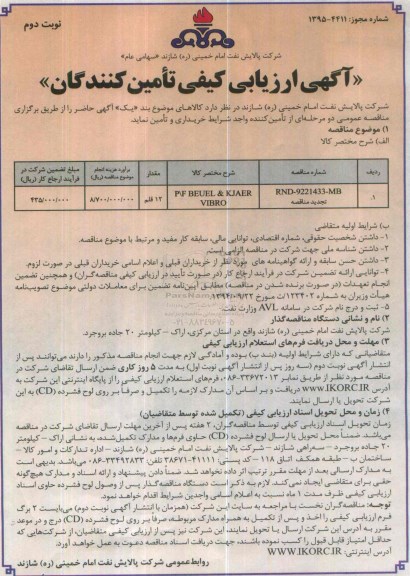 شماره مجوز: ۱۳۹۵-۴۴۱۱
نوبت دوم
شرکت پالایش نفت امام خمینی (ره) شازند «سهامی عام»
«آگهی ارزیابی کیفی تأمین کنندگان»
شرکت پالایش نفت امام خمینی (ره) شازند در نظر دارد کالاهای موضوع بند «یک» آگهی حاضر را از طریق برگزاری
مناقصه عمومی دو مرحله‌ای از تأمین‌کننده واجد شرایط خریداری و تأمین نماید.
۱) موضوع مناقصه
الف) شرح مختصر کالا
ردیف شماره مناقصه شرح مختصر کالا مقدار برآورد هزینه انجام موضوع مناقصه (ریال) مبلغ تضمین شرکت در فرآیند ارجاع کار (ریال)
۱. RND-9221433-MB تجدید مناقصه P\F BEUEL & KJAER VIBRO ۱۲ قلم ۸/۷۰۰/۰۰۰/۰۰۰ ۴۳۵/۰۰۰/۰۰۰
ب) شرایط اولیه متقاضی
۱- داشتن شخصیت حقوقی، شماره اقتصادی، توانایی مالی، سابقه کار مفید و مرتبط با موضوع مناقصه.
۲- داشتن شناسه ملی جهت شرکت در مناقصه الزامی است.
۳- داشتن حسن سابقه و ارائه گواهینامه های مورد نظر از خریداران قبلی و اعلام اسامی خریداران قبلی در صورت لزوم.
۴- توانایی ارائه تضمین شرکت در فرآیند ارجاع کار (در صورت تأیید در ارزیابی کیفی مناقصه‌گران) و همچنین تضمین
انجام تعهدات (در صورت برنده شدن در مناقصه) مطابق آیین‌نامه تضمین برای معاملات دولتی موضوع تصویب‌نامه
هیأت وزیران به شماره ۱۲۳۴۰۲/ت مورخ ۱۳۹۴/۰۹/۲۲
۵- ثبت و درج نام شرکت در سامانه AVL وزارت نفت.
۲) نام و نشانی دستگاه مناقصه‌گذار
شرکت پالایش نفت امام خمینی (ره) شازند واقع در استان مرکزی، اراک - کیلومتر ۲۰ جاده بروجرد.
۳) مهلت و محل دریافت فرم‌های استعلام ارزیابی کیفی
متقاضیانی که دارای شرایط اولیه (بند ب) بوده و آمادگی لازم جهت انجام مناقصه مذکور را دارند می‌توانند پس از
انتشار آگهی نوبت دوم (سه روز پس از انتشار آگهی نوبت اول) به مدت ۵ روز کاری ضمن ارسال تقاضای شرکت در
مناقصه مورد نظر از طریق نمابر ۳۳۶۷۲۰۱۳-۰۸۶، فرم‌های استعلام ارزیابی کیفی را از پایگاه اینترنتی این شرکت به
آدرس WWW.IKORC.IR دریافت و بر اساس آن مدارک لازمه را تکمیل و صرفاً بر روی لوح فشرده (CD) به این
شرکت تحویل یا ارسال نمایند.
۴) زمان و محل تحویل اسناد ارزیابی کیفی (تکمیل شده توسط متقاضیان)
زمان تحویل اسناد ارزیابی کیفی توسط مناقصه‌گران، ۲ هفته پس از آخرین مهلت ارسال تقاضای شرکت در مناقصه
می‌باشد. ضمناً محل تحویل یا ارسال لوح فشرده (CD) حاوی فرم‌ها و مدارک تکمیل‌شده، به نشانی اراک - کیلومتر
۲۰ جاده بروجرد - سه‌راهی شازند - شرکت پالایش نفت امام خمینی (ره) شازند - اداره تدارکات و امور کالا -
ساختمان - طبقه همکف اتاق ۱۱۸ - کد پستی ۳۸۶۷۱۴۱۱۱۱ تلفن ۳۳۴۹۲۸۳۳-۰۸۶ می‌باشد. بدیهی است
به مدارک ارسالی بعد از مهلت مقرر ترتیب اثر داده نخواهد شد. ضمناً دادن پیشنهاد و ارائه اسناد و مدارک هیچ‌گونه
حقی برای متقاضی ایجاد نمی کند. لازم به ذکر است دستگاه مناقصه‌گذار پس از وصول لوح فشرده حاوی اسناد
ارزیابی کیفی ظرف مدت ۱ ماه نسبت به اعلام اسامی واجدین شرایط اقدام خواهد نمود.
توجه: مناقصه‌گران نخست با مراجعه به سایت این شرکت (همزمان با انتشار آگهی نوبت دوم)، می‌بایست ۲ برگ
فرم ارزیابی کیفی را اخذ و پس از تکمیل به همراه مدارک مربوطه، صرفاً بر روی لوح فشرده (CD) درج و در موعد
مقرر به آدرس این شرکت ارسال یا تحویل نمایند. این شرکت نیز پس از ارزیابی کیفی متقاضیان، از شرکت‌هایی که
حداقل امتیاز قابل قبول را کسب نموده باشند، جهت دریافت اسناد مناقصه دعوت به عمل خواهد آورد.
آدرس اینترنتی: WWW.IKORC.IR
روابط‌عمومی شرکت پالایش نفت امام خمینی (ره) شازند